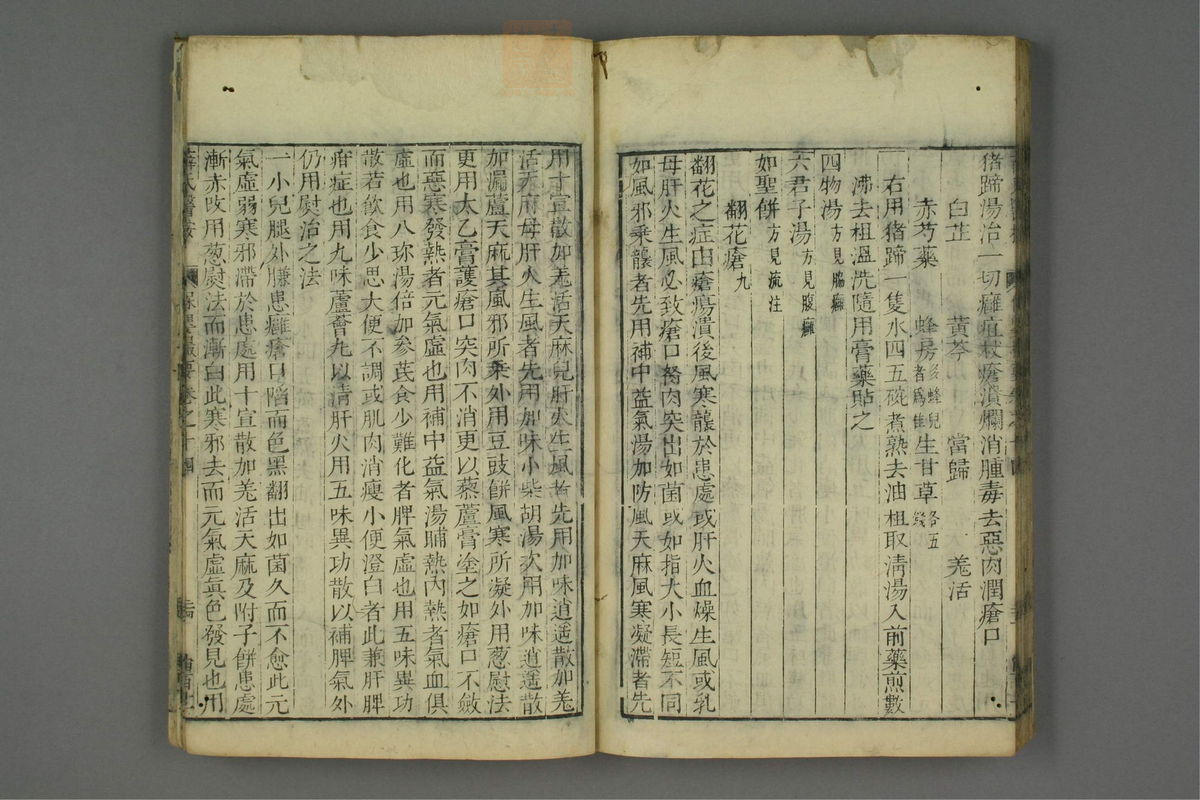 猪蹄湯治一切癰疽杖瘡潰爛消腫毒去惡肉潤瘡口
白芷　黃芩　當歸　羗活
赤芍藥　蜂房多蜂兒者爲佳　生甘草各五錢
右用猪蹄一隻水四五碗煮熟去油柤取淸湯入前藥煎數
沸去柤溫洗隨用膏藥貼之
四物湯方見腸癰
六君子湯方見腹癰
如聖餅方見流注
翻花瘡九
翻花之症由瘡瘍潰後風寒襲於患處或肝火血燥生風或乳
母肝火生風必致瘡口胬肉突出如菌或如指大小長短不同
如風邪乘襲者先用補中益氣湯加防風天麻風寒凝滯者先
用十宣散加羗活天麻兒肝火生風者先用加味逍遥散加羗
活天麻母肝火生風者先用加味小柴胡湯次用加味逍遥散
加漏蘆天麻其風邪所乘外用豆豉餅風寒所凝外用葱慰法
更用太乙膏護瘡口突肉不消更以藜蘆膏塗之如瘡口不斂
而惡寒發熱者元氣虛也用補中益氣湯晡熱內熱者氣血俱
虛也用八珎湯倍加參芪食少難化者脾氣虛也用五味異功
散若飮食少思大便不調或肌肉消瘦小便澄白者此兼肝脾
疳症也用九味蘆薈丸以淸肝火用五味異功散以補脾氣外
仍用熨治之法
一小兒腿外臁患癰瘡口陷而色黑翻出如菌久而不愈此元
氣虛弱寒邪滯於患處用十宣散加羗活天麻及附子餅患處
漸赤改用葱熨法而漸白此寒邪去而元氣虛眞色發見也用
薛氏醫案　保嬰撮要卷之十四